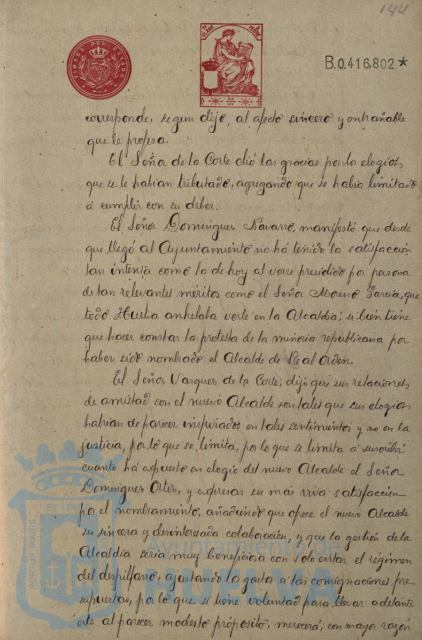 144
B.0.416,802*
corresponde, segun dijo, al afecto sincero y entrañable
que le profesa.
El Señor de la Corte dió las gracias por los elogios
que se le habian tributado, agregando que se habia limitado
á cumplir con su deber.
El Señor Dominguez Navarro, manifestó que desde
que llegó al Ayuntamiento no ha tenido la satisfacción
tan intensa como la de hoy al verse presidido por persona
de tan relevantes méritos como el Señor Moreno Garcia, que
todo Huelva anhelaba verle en la Alcaldia; si bien tiene
que hacer constar la protesta de la minoria republicana por
haber sido nombrado el Alcalde de Real Orden.
El Señor Vazquez de la Corte, dijo que sus relaciones
de amistad con el nuevo Alcalde son tales que sus elogios
habrian de parecer inspirados en tales sentimientos y no en la
justicia, por lo que se limita, por lo que se limita á suscribir
cuanto ha expuesto en elogio del nuevo Alcalde el Señor
Dominguez Ortiz, y expresar su mas viva satisfacción
por el nombramiento, añadiendo que ofrece al nuevo Alcalde
su sincera y desinteresada colaboración, y que la gestión de la
Alcaldia seria muy beneficiosa con solo evitar el régimen
del despilfarro, ajustando los gastos a las consignaciones pre-
supuestas, por lo que si tiene voluntad para llevar a adelante
este al parecer modesto propósito, merecerá, con mayor razón
Ayuntamiento de